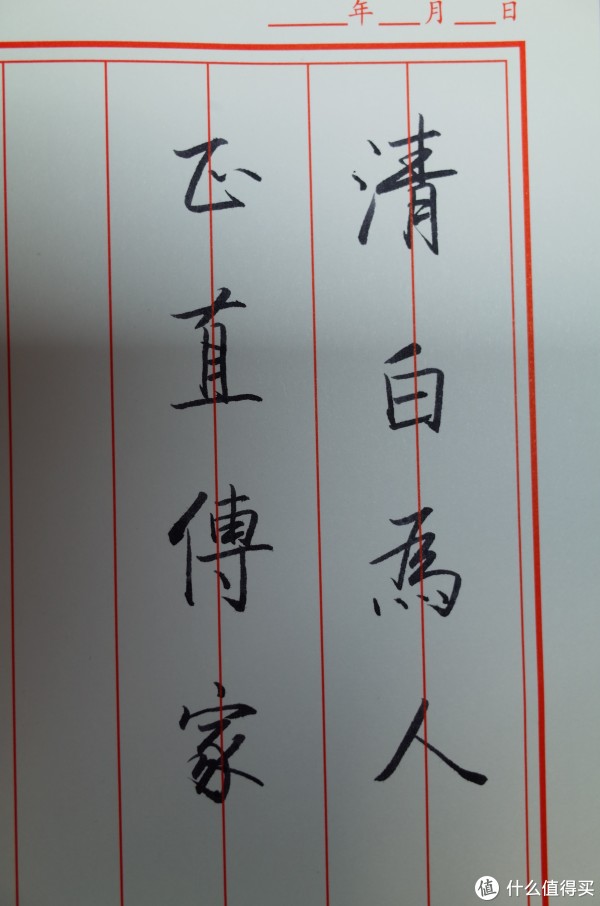 年 月 日
清白為人
正直傳家
值 什么值得买